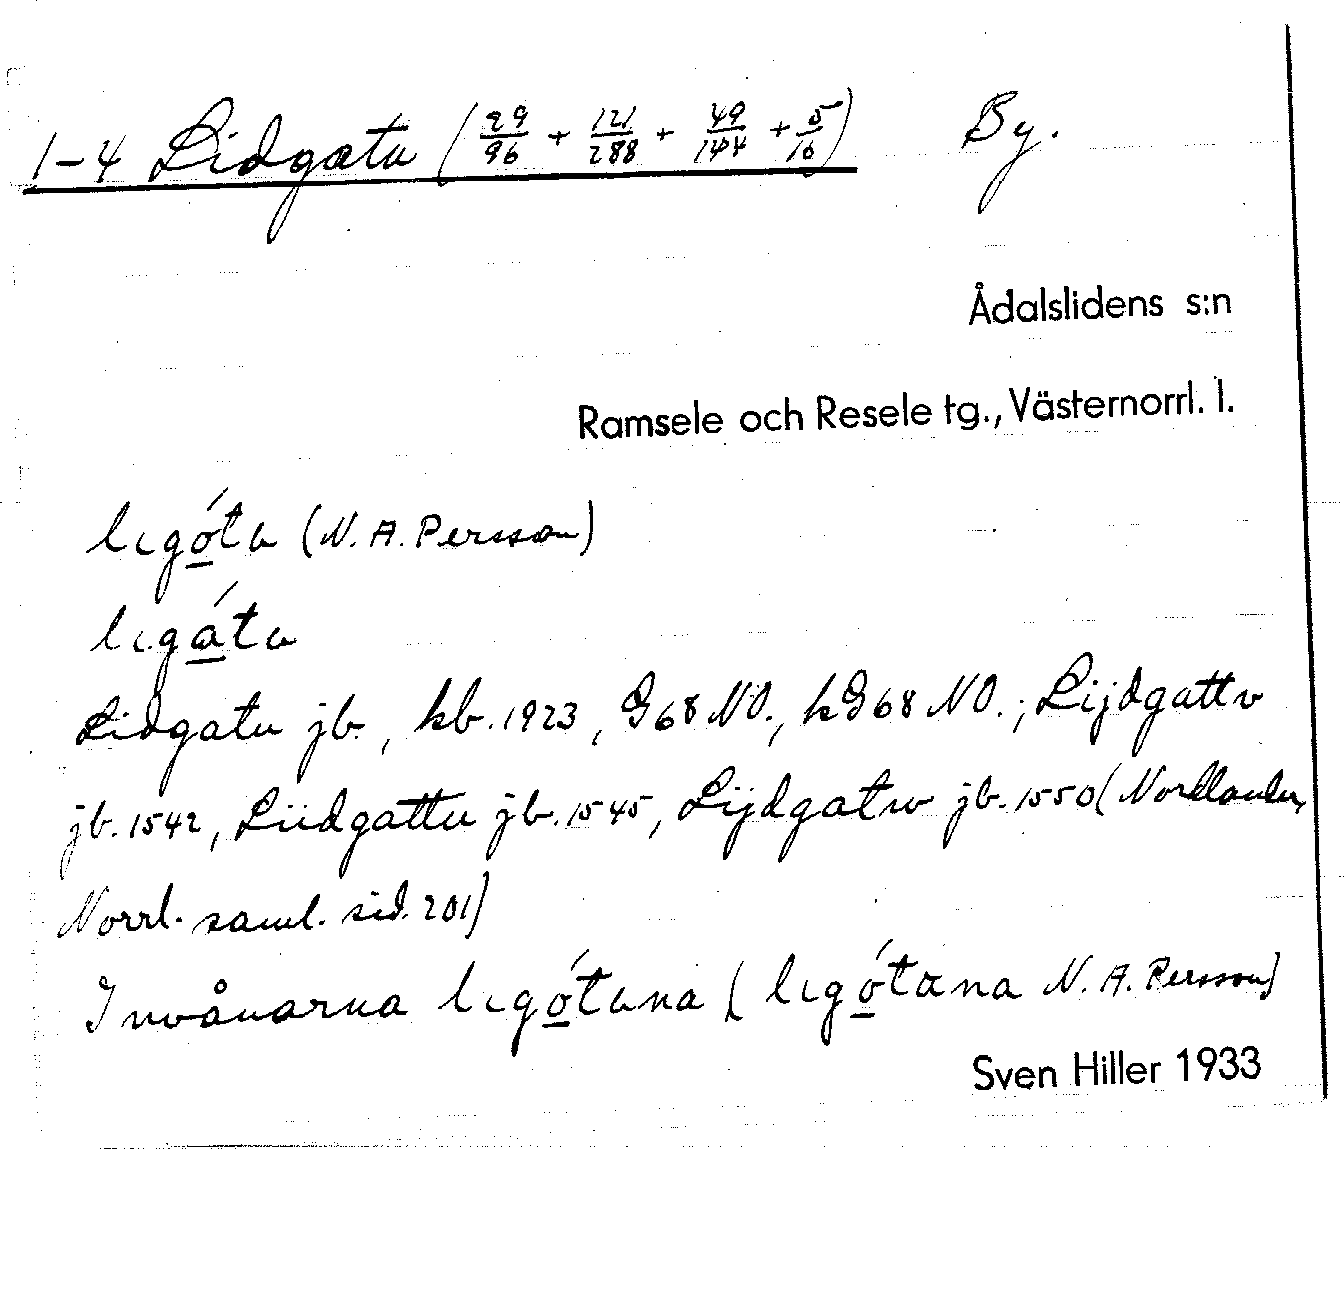 1-4 Lidgatu (29/96 + 121/288 + 49/144 + 5/16) By.
Ådalslidens s:n
Ramsele och Resele tg., Västernorrl. l.
ligóta (N. A. Persson)
ligáta
Lidgatu jb., kb. 1923, G68 NO., hG68 NO.; Lijdgattv
jb. 1542, Liidgattu jb. 1545, Lijdgatw jb. 1550 (Nordlander,
Norrl. saml. sid. 201)
Invånarna ligótana (ligótana N. A. Persson)
Sven Hiller 1933